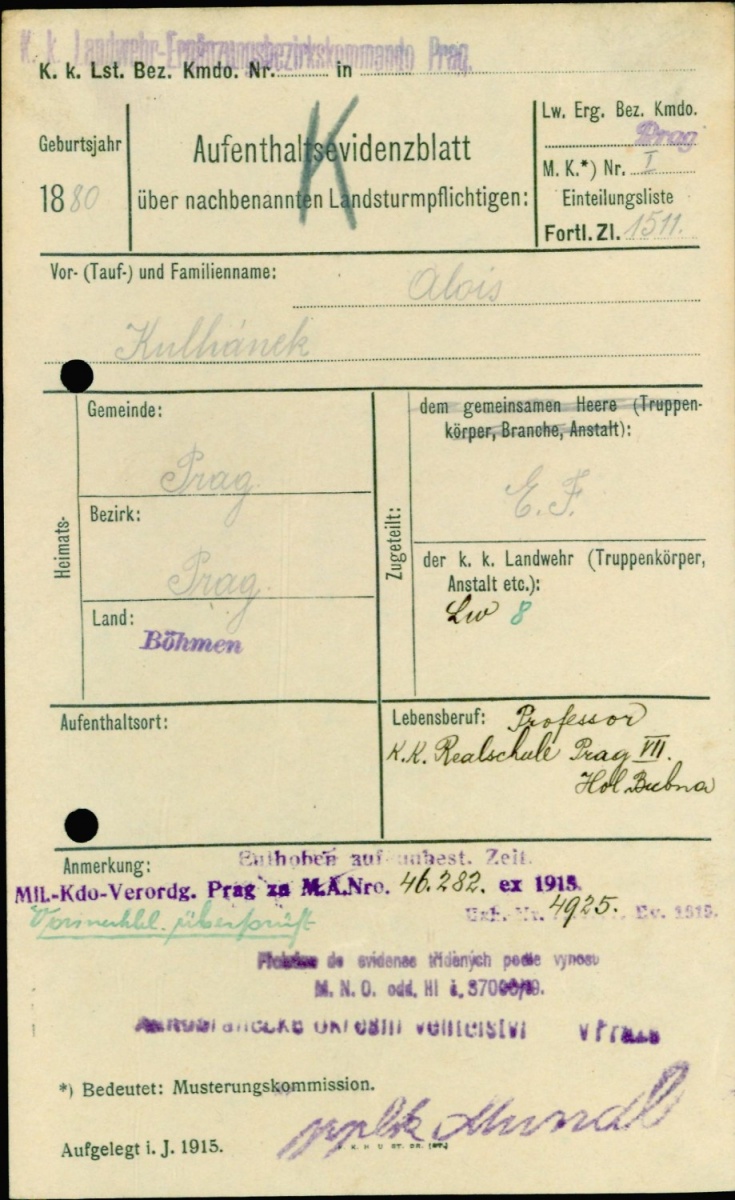 K. k. Landwehr-Ergänzungsbezirkskommando Prag.
K. k. Lst. Bez. Kmdo. Nr. in
Geburtsjahr
1880
K
Aufenthaltsevidenzblatt
über nachbenannten Landsturmpflichtigen:
Lw. Erg. Bez. Kmdo.
Prag
M. K.*) Nr. I
Einteilungsliste
Fortl. Zl. 1511.
Vor- (Tauf-) und Familienname: Alois
Kulhánek
Heimats-
Gemeinde:
Prag
Bezirk:
Prag.
Land:
Böhmen
Zugeteilt:
dem gemeinsamen Heere (Truppen-
körper, Branche, Anstalt):
E. F.
der k. k. Landwehr (Truppenkörper,
Anstalt etc.):
Lw 8
Aufenthaltsort:
Lebensberuf: Professor
K.K. Realschule Prag VII.
Hol. Bubna
Anmerkung:
Enthoben auf unbest. Zeit.
Mil.-Kdo-Verordg. Prag zu M.A.Nro. 46.282. ex 1915.
Exh. Nr. 4925. 1915.
überprüft
de evidence tříděných podle vynosu
M. N. O. odd. HI č. 37000/19.
okresní velitelství v Praze
*) Bedeutet: Musterungskommission.
Aufgelegt i. J. 1915.